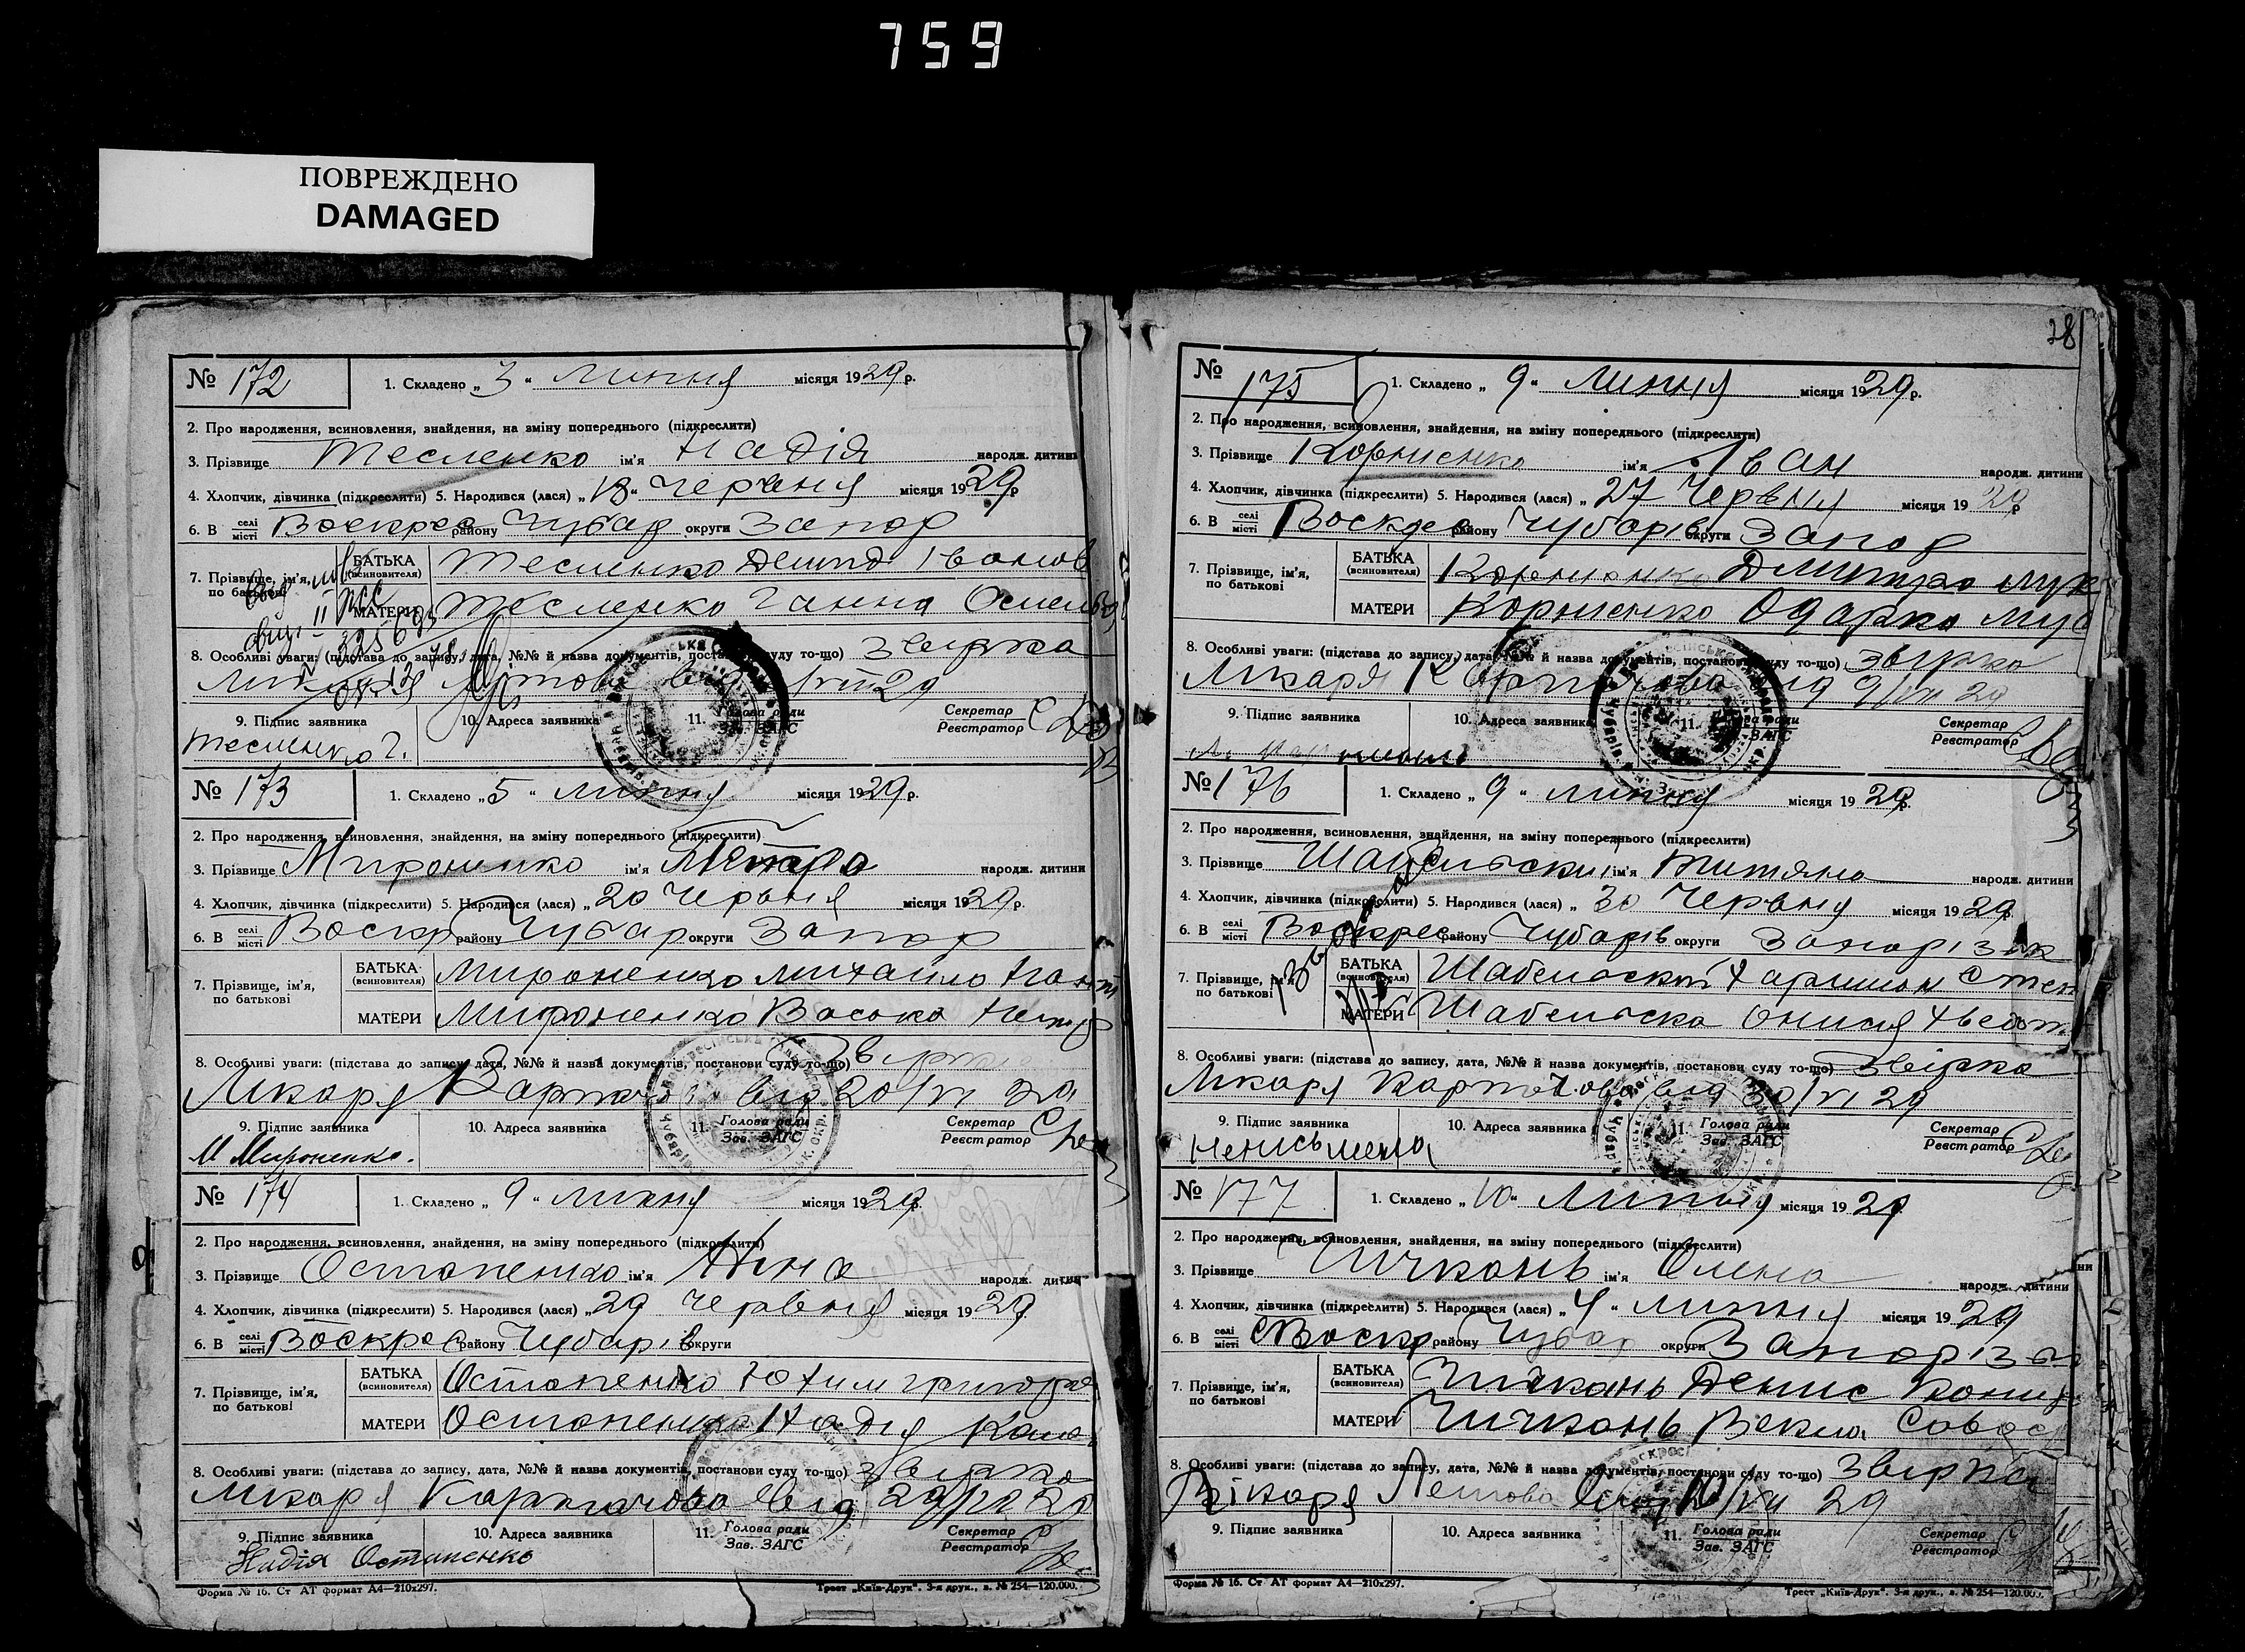 759
ПОВРЕЖДЕНО
DAMAGED
28
№ 172
1. Складено „ 3 “ липня місяця 1929 р.
2. Про народження, всиновлення, знайдення, на зміну попереднього (підкреслити)
3. Прізвище Тесленко ім'я Надія народж. дитини
4. Хлопчик, дівчинка (підкреслити) 5. Народився (лася) „ 18 “ Червня місяця 1929 р
6. В селі місті Воскрес району Чубар округи Запор
7. Прізвище, ім'я, по батькові
БАТЬКА (всиновителя) Тесленко Іванов
МАТЕРИ Тесленко Ганна
8. Особливі уваги: (підстава до запису, дата, №№ й назва документів, постанови суду то-що) звірка
9. Підпис заявника
10. Адреса заявника
11. Голова ради Зав. ЗАГС
Секретар Реєстратор
Тесленко Г.
№ 173
1. Складено „ 5 “ липня місяця 1929 р.
2. Про народження, всиновлення, знайдення, на зміну попереднього (підкреслити)
3. Прізвище Мироненко ім'я народж. дитини
4. Хлопчик, дівчинка (підкреслити) 5. Народився (лася) „ 20 Червня місяця 1929 р.
6. В селі місті Воскр району Чубар округи Запор
7. Прізвище, ім'я, по батькові
БАТЬКА (всиновителя) Мироненко Михайло
МАТЕРИ Мироненко
8. Особливі уваги: (підстава до запису, дата, №№ й назва документів, постанови суду то-що) Звірка
Лікаря від 20/VI 29
9. Підпис заявника
10. Адреса заявника
11. Голова ради Зав. ЗАГС
Секретар Реєстратор
М Мироненко.
№ 174
1. Складено „ 9 “ липня місяця 1929
2. Про народження, всиновлення, знайдення, на зміну попереднього (підкреслити)
3. Прізвище Остапенко ім'я Ніна народж. дитини
4. Хлопчик, дівчинка (підкреслити) 5. Народився (лася) „ 29 червня місяця 1929
6. В селі місті Воскрес району Чубарів округи
7. Прізвище, ім'я, по батькові
БАТЬКА (всиновителя) Остапенко Юхим григоров
МАТЕРИ Остапенко Надія
8. Особливі уваги: (підстава до запису, дата, №№ й назва документів, постанови суду то-що) звірка
Лікаря від
9. Підпис заявника
10. Адреса заявника
11. Голова ради Зав. ЗАГС
Секретар Реєстратор
Надія Остапенко
Форма № 16. Ст АТ формат А4—210х297.
Трест „Київ-Друк“. 3-я друк., з. № 254—120.000.
№ 175
1. Складено „ 9 “ Липня місяця 1929 р.
2. Про народження, всиновлення, знайдення, на зміну попереднього (підкреслити)
3. Прізвище Корниенко ім'я Іван народж. дитини
4. Хлопчик, дівчинка (підкреслити) 5. Народився (лася) „ 27 Червня місяця 1929 р
6. В селі місті Воскрес району Чубарів округи Запор
7. Прізвище, ім'я, по батькові
БАТЬКА (всиновителя) Корниенко Дмитро
МАТЕРИ Корниенко Одарка
8. Особливі уваги: (підстава до запису, дата, №№ й назва документів, постанови суду то-що) звірка
Лікаря від 9/VII 29
9. Підпис заявника
10. Адреса заявника
11. Голова ради Зав. ЗАГС
Секретар Реєстратор
№ 176
1. Складено „ 9 “ липня місяця 1929 р.
2. Про народження, всиновлення, знайдення, на зміну попереднього (підкреслити)
3. Прізвище ім'я Титяна народж. дитини
4. Хлопчик, дівчинка (підкреслити) 5. Народився (лася) „ 30 Червня місяця 1929
6. В селі місті Воскрес району Чубарів округи Запоріз
7. Прізвище, ім'я, по батькові
БАТЬКА (всиновителя) Шабельский
МАТЕРИ Шабельска Онися
8. Особливі уваги: (підстава до запису, дата, №№ й назва документів, постанови суду то-що) Звірка
Лікаря від 30/VI 29
9. Підпис заявника
10. Адреса заявника
11. Голова ради Зав. ЗАГС
Секретар Реєстратор
неписьмена
№ 177
1. Складено „ 10 “ Липня місяця 1929
2. Про народження, всиновлення, знайдення, на зміну попереднього (підкреслити)
3. Прізвище Чичкань ім'я Олена народж. дитини
4. Хлопчик, дівчинка (підкреслити) 5. Народився (лася) „ 4 “ липня місяця 1929
6. В селі місті Воскр району Чубар округи Запоріз
7. Прізвище, ім'я, по батькові
БАТЬКА (всиновителя) Чичкань Денис
МАТЕРИ Чичкань Векла
8. Особливі уваги: (підстава до запису, дата, №№ й назва документів, постанови суду то-що) звірка
Лікаря від 10/VII 29
9. Підпис заявника
10. Адреса заявника
11. Голова ради Зав. ЗАГС
Секретар Реєстратор
Форма № 16. Ст АТ формат А4—210х297.
Трест „Київ-Друк“. 3-я друк., з. № 254—120.000.